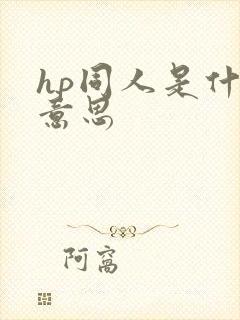 hp同人是什
意思
阿窩